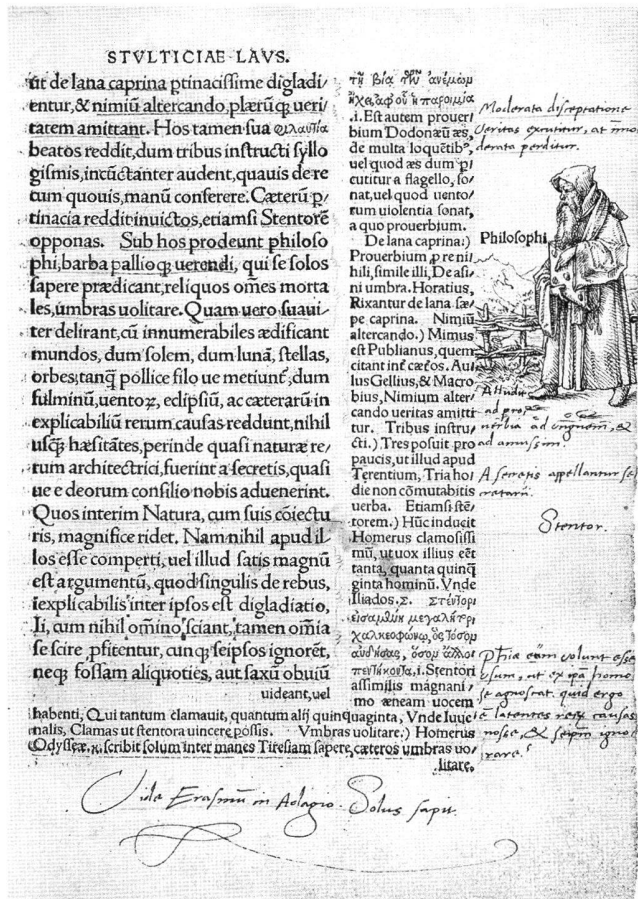 STVLTICIAE LAVS.
ut de lana caprina ꝑtinacissime digladi/
entur, & nimiū altercando, plærūq; ueri/
tatem amittant. Hos tamen sua φιλαυτία
beatos reddit, dum tribus instructi syllo
gismis, incūctanter audent, quauis de re
cum quouis, manū conserere. Cæterū ꝑ/
tinacia reddit inuictos, etiamsi Stentorē
opponas. Sub hos prodeunt philoso
phi, barba pallioq; uerendi, qui se solos
sapere prædicant, reliquos om̄es morta
les, umbras uolitare. Quam uero suaui/
ter delirant, cū innumerabiles ædificant
mundos, dum solem, dum lunā, stellas,
orbes, tanq̄ pollice filo ue metiunt, dum
fulminū, uentoꝝ, eclipsiū, ac cæterarū in
explicabiliū rerum causas reddunt, nihil
usq̄ hæsitātes, perinde quasi naturæ re/
rum architectrici, fuerint a secretis, quasi
ue e deorum consilio nobis aduenerint.
Quos interim Natura, cum suis cōiectu
ris, magnifice ridet. Nam nihil apud il/
los esse comperti, uel illud satis magnū
est argumentū, quod singulis de rebus,
iexplicabilis inter ipsos est digladiatio,
Ii, cum nihil om̄ino sciant, tamen om̄ia
se scire ꝓfitentur, cunq̄ seipsos ignorēt,
neq; fossam aliquoties, aut saxū obuiū
uideant, uel
τῇ βία τῶν ἀνέμων
ἠχεῖ, ἀφ' οὗ ἡ παροιμία
.i. Est autem prouer/
bium Dodonæū æs,
de multa loquētib⁹,
uel quod æs dum p/
cutitur a flagello, so/
nat, uel quod uento/
rum uiolentia sonat,
a quo prouerbium.
De lana caprina:)
Prouerbium ꝓ re ni
hili, simile illi, De asi/
ni umbra. Horatius,
Rixantur de lana sæ/
pe caprina. Nimiū
altercando.) Mimus
est Publianus, quem
citant int̄ cæt̄os. Au/
lus Gellius, & Macro
bius, Nimium alter/
cando ueritas amitti
tur. Tribus instru/
cti.) Tres posuit pro
paucis, ut illud apud
Terentium, Tria ho/
die non cōmutabitis
uerba. Etiamsi stē/
torem.) Hūc inducit
Homerus clamosissi
mū, ut uox illius eēt
tanta, quanta quinq̄
ginta hominū. Vnde
Iliados. Σ. Στέντορι
εἰσαμένη μεγαλήτορι
χαλκεοφώνῳ, ὃς τόσον
αὐδήσασ', ὅσον ἄλλοι
πεντήκοντα, .i. Stentori
assimilis magnani/
mo æneam uocem
habenti, Qui tantum clamauit, quantum alij quinquaginta, Vnde Iuue/
nalis, Clamas ut stentora uincere possis. Vmbras uolitare.) Homerus
Odysseæ. κ. scribit solum inter manes Tiresiam sapere, cæteros umbras uo/
litare.
Moderata disceptatione
Veritas excutitur, at immo
derata perditur.
Philosophi
Alludit
ad pro
uerbia ad unguem, &
ad amussim.
A secretis appellantur se
cretarii.
Stentor.
volunt esse
homo
se agnoscat. quid ergo
latentes causas
nosse, & seipsum igno
rare?
Vide Erasmū in Adagio. Solus sapit.